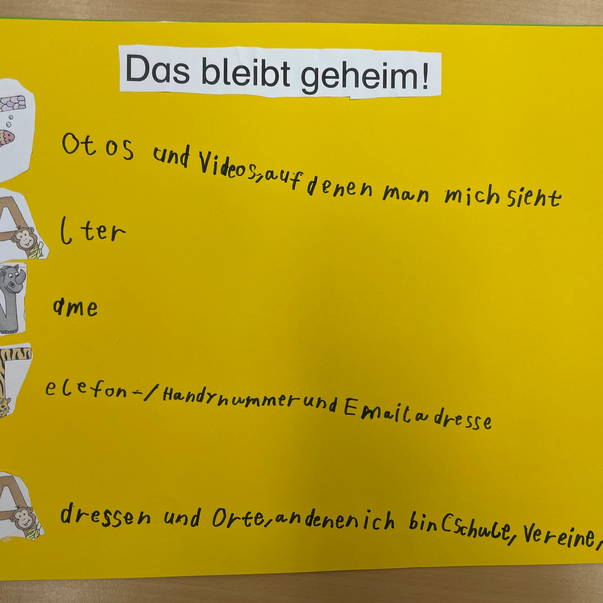 Das bleibt geheim!
Fotos und Videos, auf denen man mich sieht
Alter
Name
Telefon-/Handynummer und Emailadresse
Adressen und Orte, an denen ich bin (Schule, Vereine,